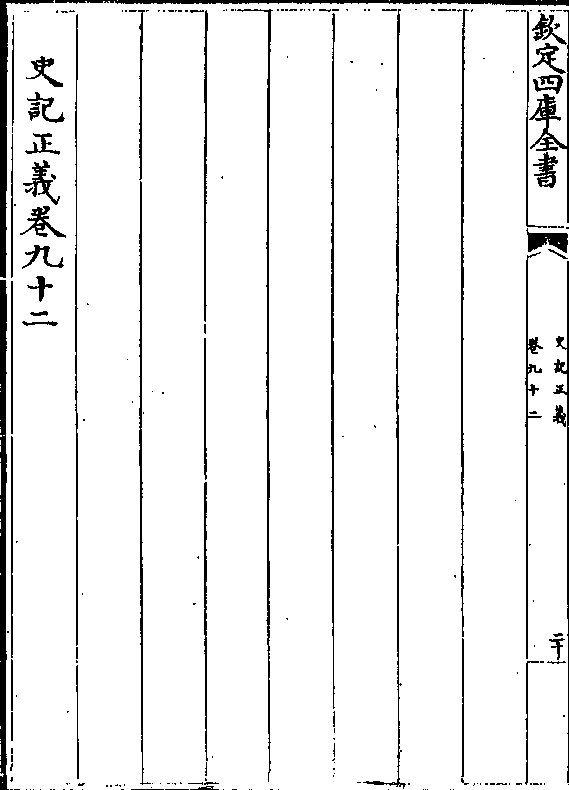 欽定四庫全書
史記正義
卷九十二
二十
史記正義卷九十二